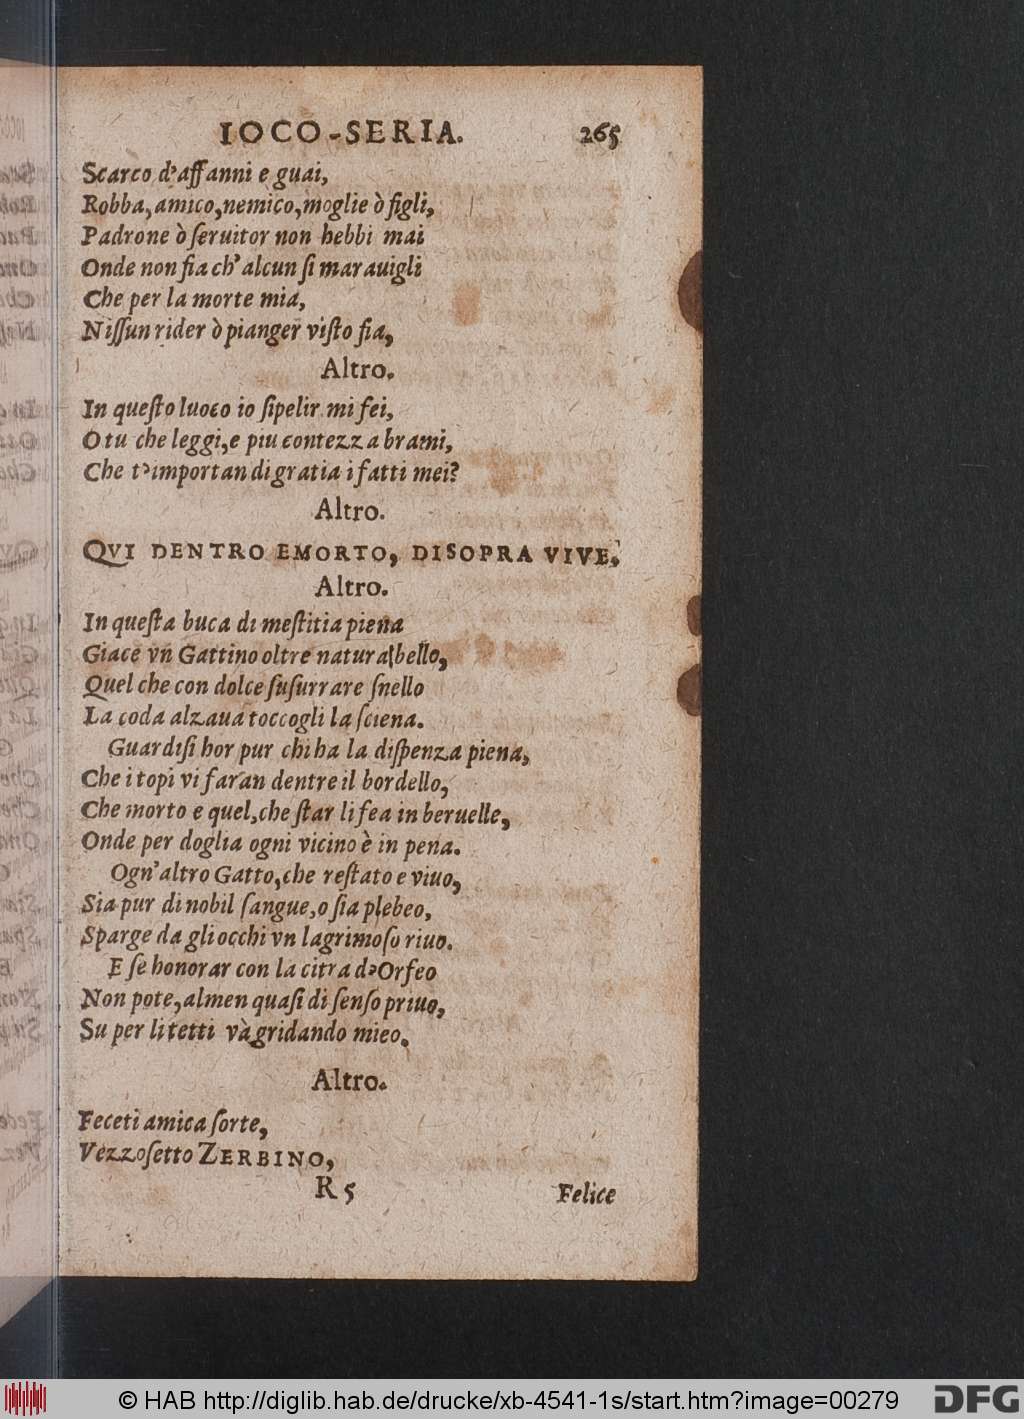 IOCO-SERIA. 265
Scarco d'affanni e guai,
Robba, amico, nemico, moglie ò figli,
Padrone ò ſeruitor non hebbi mai
Onde non fia ch'alcun ſi marauigli
Che per la morte mia,
Niſſun rider ò pianger viſto fia,
Altro.
In queſto luoco io ſipelir mi fei,
O tu che leggi, e piu contezza brami,
Che t'importan di gratia i fatti mei?
Altro.
QVI DENTRO EMORTO, DISOPRA VIVE,
Altro.
In queſta buca di meſtitia piena
Giace vn Gattino oltre natura bello,
Quel che con dolce ſuſurrare ſnello
La coda alzaua toccogli la ſciena.
Guardiſi hor pur chi ha la diſpenza piena,
Che i topi vi faran dentre il bordello,
Che morto e quel, che ſtar li fea in beruelle,
Onde per doglia ogni vicino è in pena.
Ogn'altro Gatto, che reſtato e viuo,
Sia pur di nobil ſangue, o ſia plebeo,
Sparge da gli occhi vn lagrimoſo riuo.
E ſe honorar con la citra d'Orfeo
Non pote, almen quaſi di ſenſo priuo,
Su per li tetti và gridando mieo.
Altro.
Feceti amica ſorte,
Vezzoſetto ZERBINO,
R 5 Felice
© HAB http://diglib.hab.de/drucke/xb-4541-1s/start.htm?image=00279
DFG